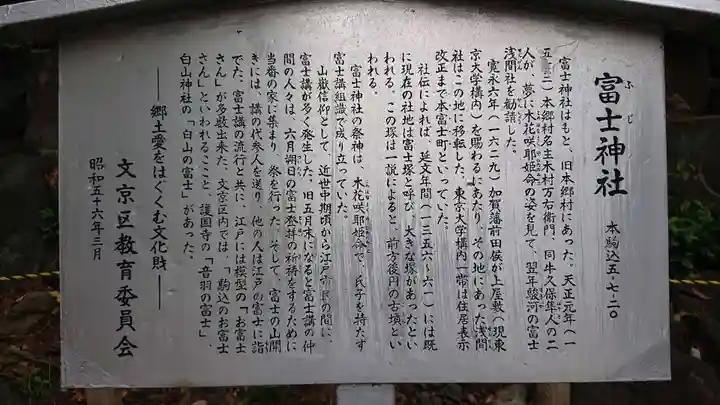 富士神社
ふじ
本駒込五-七-二〇
富士神社はもと、旧本郷村にあった。天正元年(一
五七三)本郷村名主木村万右衛門、同牛久保隼人の二
人が、夢に木花咲耶姫命の姿を見て、翌年駿河の富士
浅間社を勧請した。
寛永六年(一六二九)加賀藩前田侯が上屋敷(現東
京大学構内)を賜わるにあたり、その地にあった浅間
社はこの地に移転した。東京大学構内一帯は住居表示
改正まで本富士町といっていた。
社伝によれば、延文年間(一三五六〜六一)には既
に現在の社地は富士塚と呼び、大きな塚があったとい
われる。この塚は一説によると、前方後円の古墳とい
われる。
富士神社の祭神は、木花咲耶姫命で、氏子を持たず
富士講組織で成り立っていた。
山嶽信仰として、近世中期頃から江戸市民の間に、
富士講が多く発生した。旧五月末になると富士講の仲
間の人々は、六月朔日の富士登拝の祈祷をするために
当番の家に集まり、祭を行った。そして、富士の山開
きには、講の代参人を送り、他の人は江戸の富士に詣
でた。富士講の流行と共に、江戸には模型の「お富士
さん」が多数出来た。文京区内では、「駒込のお富士
さん」といわれるここと、護国寺の「音羽の富士」、
白山神社の「白山の富士」があった。
――郷土愛をはぐくむ文化財――
文京区教育委員会
昭和五十六年三月